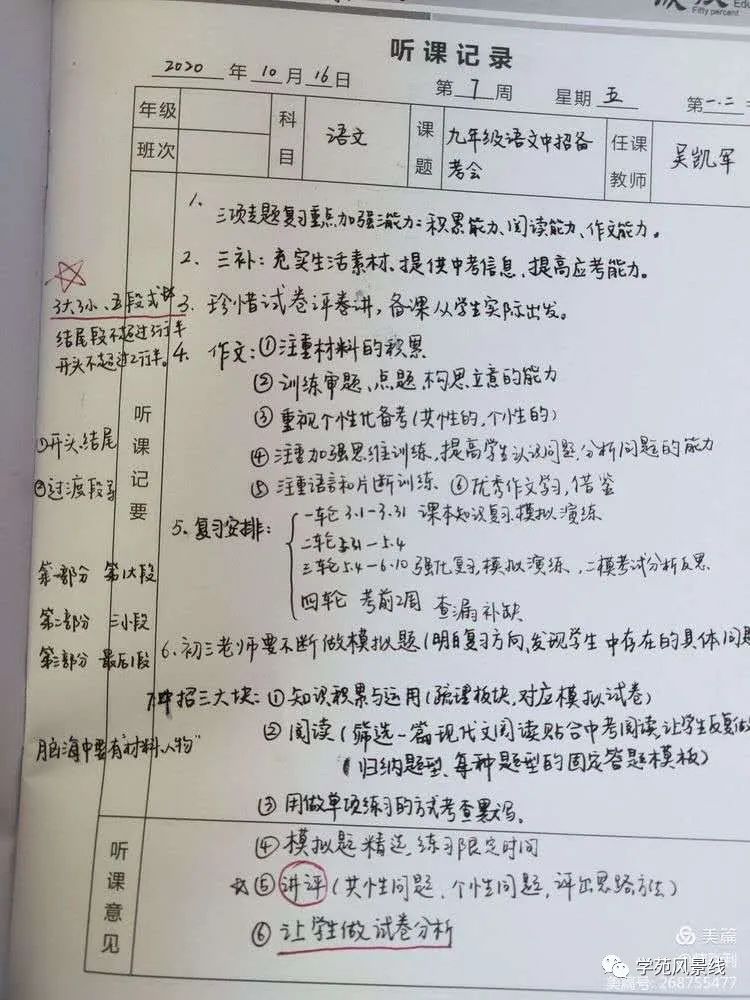 Fifty percent
听课记录
2020 年 10 月 16 日 第 7 周 星期 五 第一.二
年级 科目 语文 课题 九年级语文中招备考会 任课教师 吴凯军
班次
1. 三项专题复习重点加强三能力：积累能力、阅读能力、作文能力。
2. 三补：充实生活素材、提供中考信息、提高应考能力。
3. 珍惜试卷评卷讲，备课从学生实际出发。
4. 作文：①注重材料的积累
②训练审题、点题、构思立意的能力
③重视个性化备考（共性的，个性的）
④注重加强思维训练，提高学生认识问题，分析问题的能力
⑤注重语言和片断训练 ⑥优秀作文学习，借鉴
5. 复习安排：
一轮 3.1-3.31 课本知识复习，模拟演练
二轮 — 5.4
三轮 5.4-6.10 强化复习，模拟演练、二模考试分析反思
四轮 考前2周 查漏补缺
6. 初三老师要不断做模拟题（明白复习方向，发现学生中存在的具体问题
7. 中招三大块：①知识积累与运用（梳理板块，对应模拟试卷）
②阅读（筛选一篇现代文阅读贴合中考阅读，让学生反复做
（归纳题型，每种题型的固定答题模板）
③用做单项练习的方式考查默写。
④模拟题精选，练习限定时间
☆⑤讲评（共性问题、个性问题，评出思路方法）
⑥让学生做试卷分析
3大3小、五段式
结尾段不超过3行半
开头不超过2行半。
①开头、结尾
②过渡段
第一部分 第1大段
第二部分 三小段
第三部分 最后1段
脑海中要有"材料、人物"
听课记要
听课意见
美篇
学苑风景线
美篇号: 268755477